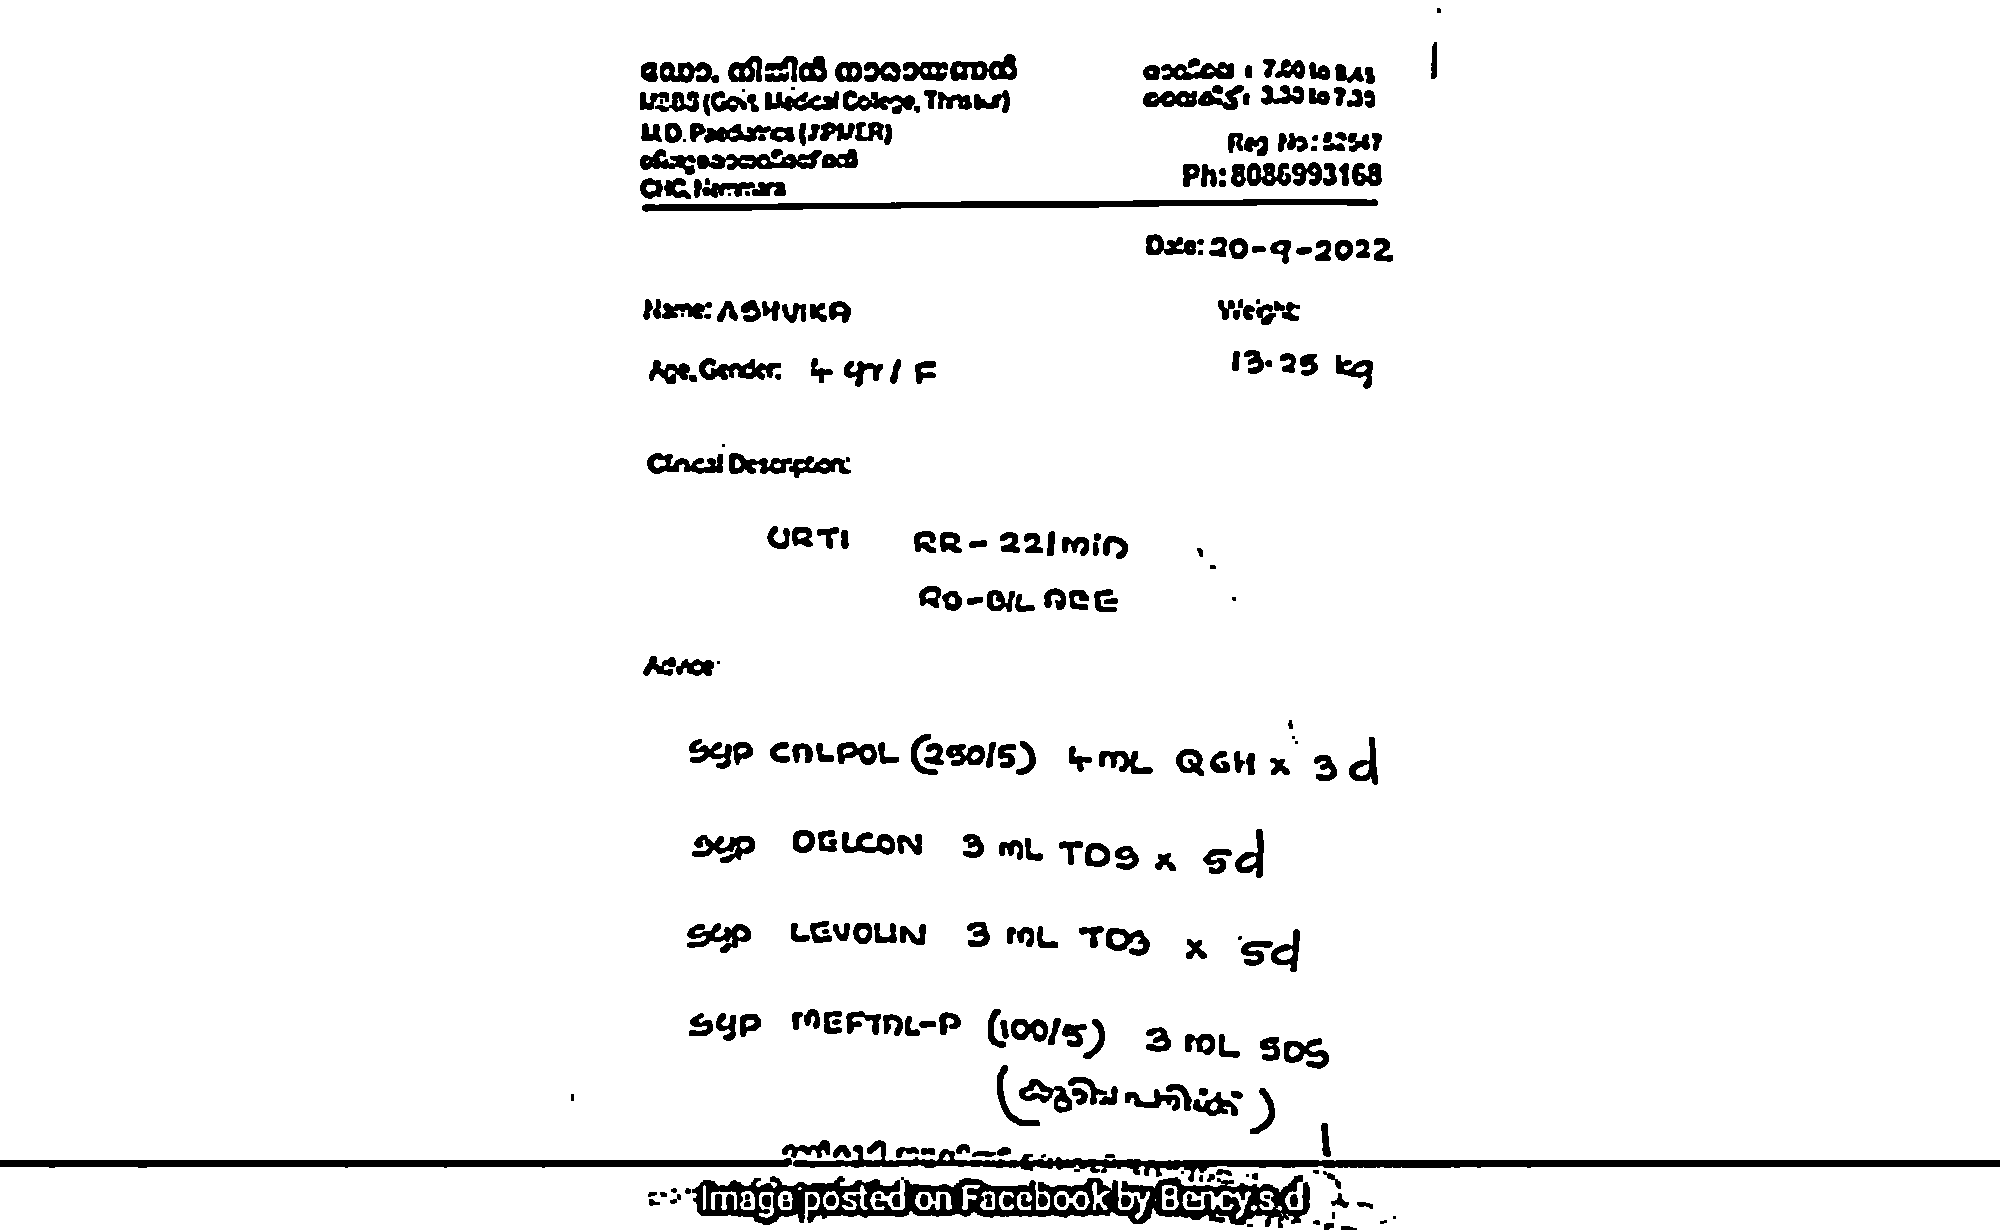 ഡോ. നിജിൽ നാരായണൻ
MBBS (Govt. Medical College, Thrissur)
M.D. Paediatrics (JIPMER)
ശിശുരോഗവിദഗ്ദ്ധൻ
CHC, Nemmara
രാവിലെ : 7.00 to 8.45
വൈകിട്ട് : 3.30 to 7.30
Reg No: 52547
Ph: 8086993168
Date: 20-9-2022
Name: ASHVIKA
Weight:
Age, Gender: 4 yr / F
13.25 kg
Clinical Description:
URTI RR - 22/min
RS - B/L AEE
Advice
Syp CALPOL (250/5) 4 mL Q6H x 3 d
Syp DELCON 3 mL TDS x 5d
Syp LEVOLIN 3 mL TDS x 5d
Syp MEFTAL-P (100/5) 3 mL SOS
(കൂടിയ പനിക്ക്)
Image posted on Facebook by Bency.s.d